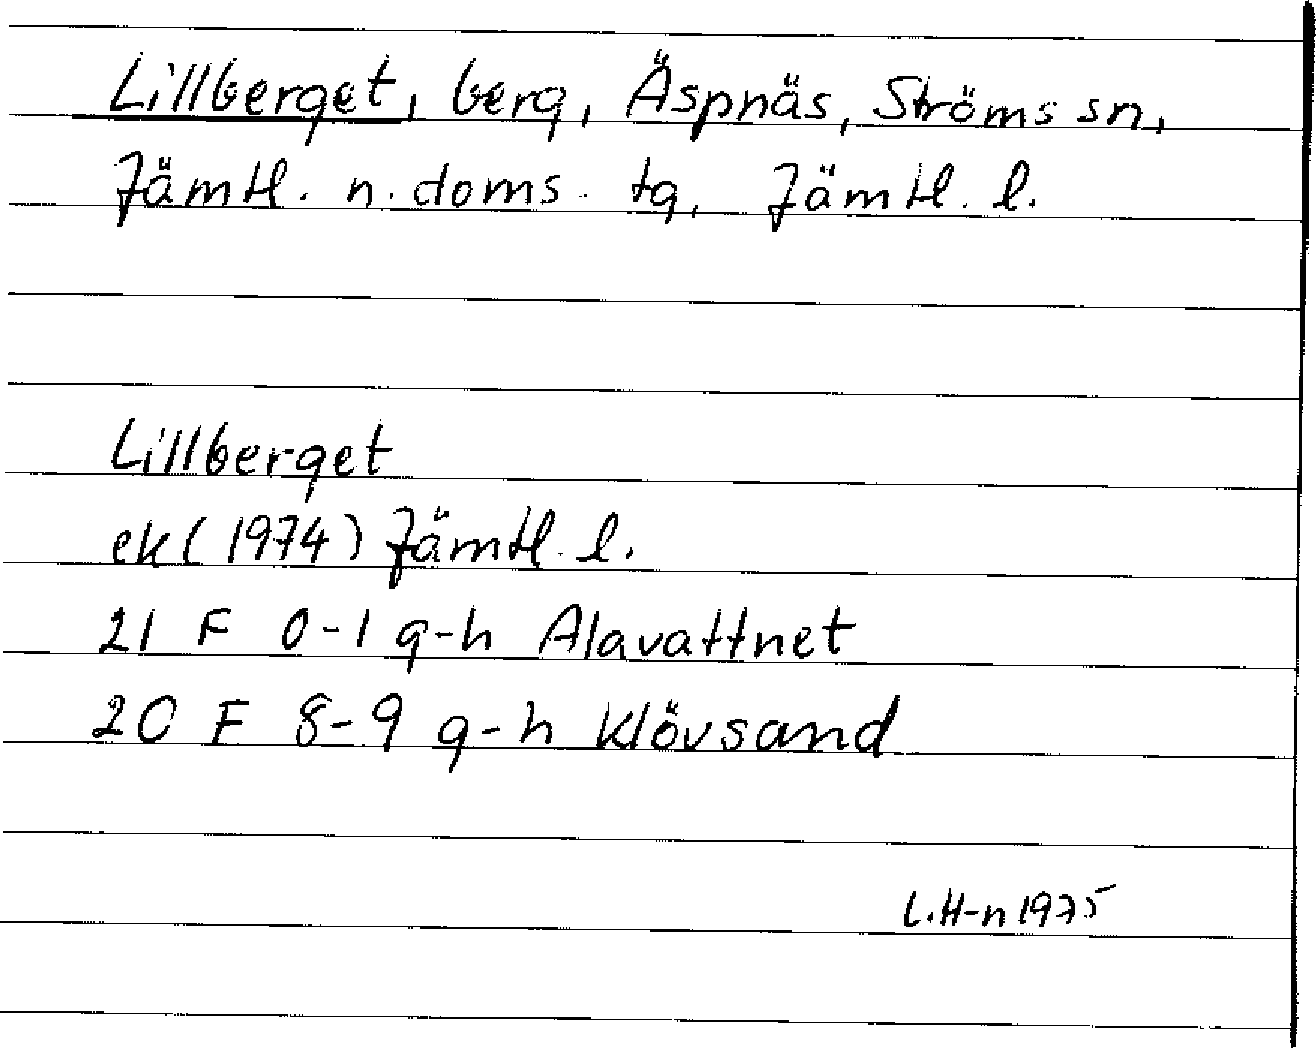 Lillberget, berg, Äspnäs, Ströms sn,
Jämtl. n. doms. tg, Jämtl. l.
Lillberget
ek (1974) Jämtl. l.
21 F 0-1 g-h Alavattnet
20 F 8-9 g-h Klövsand
L.H-n 1975